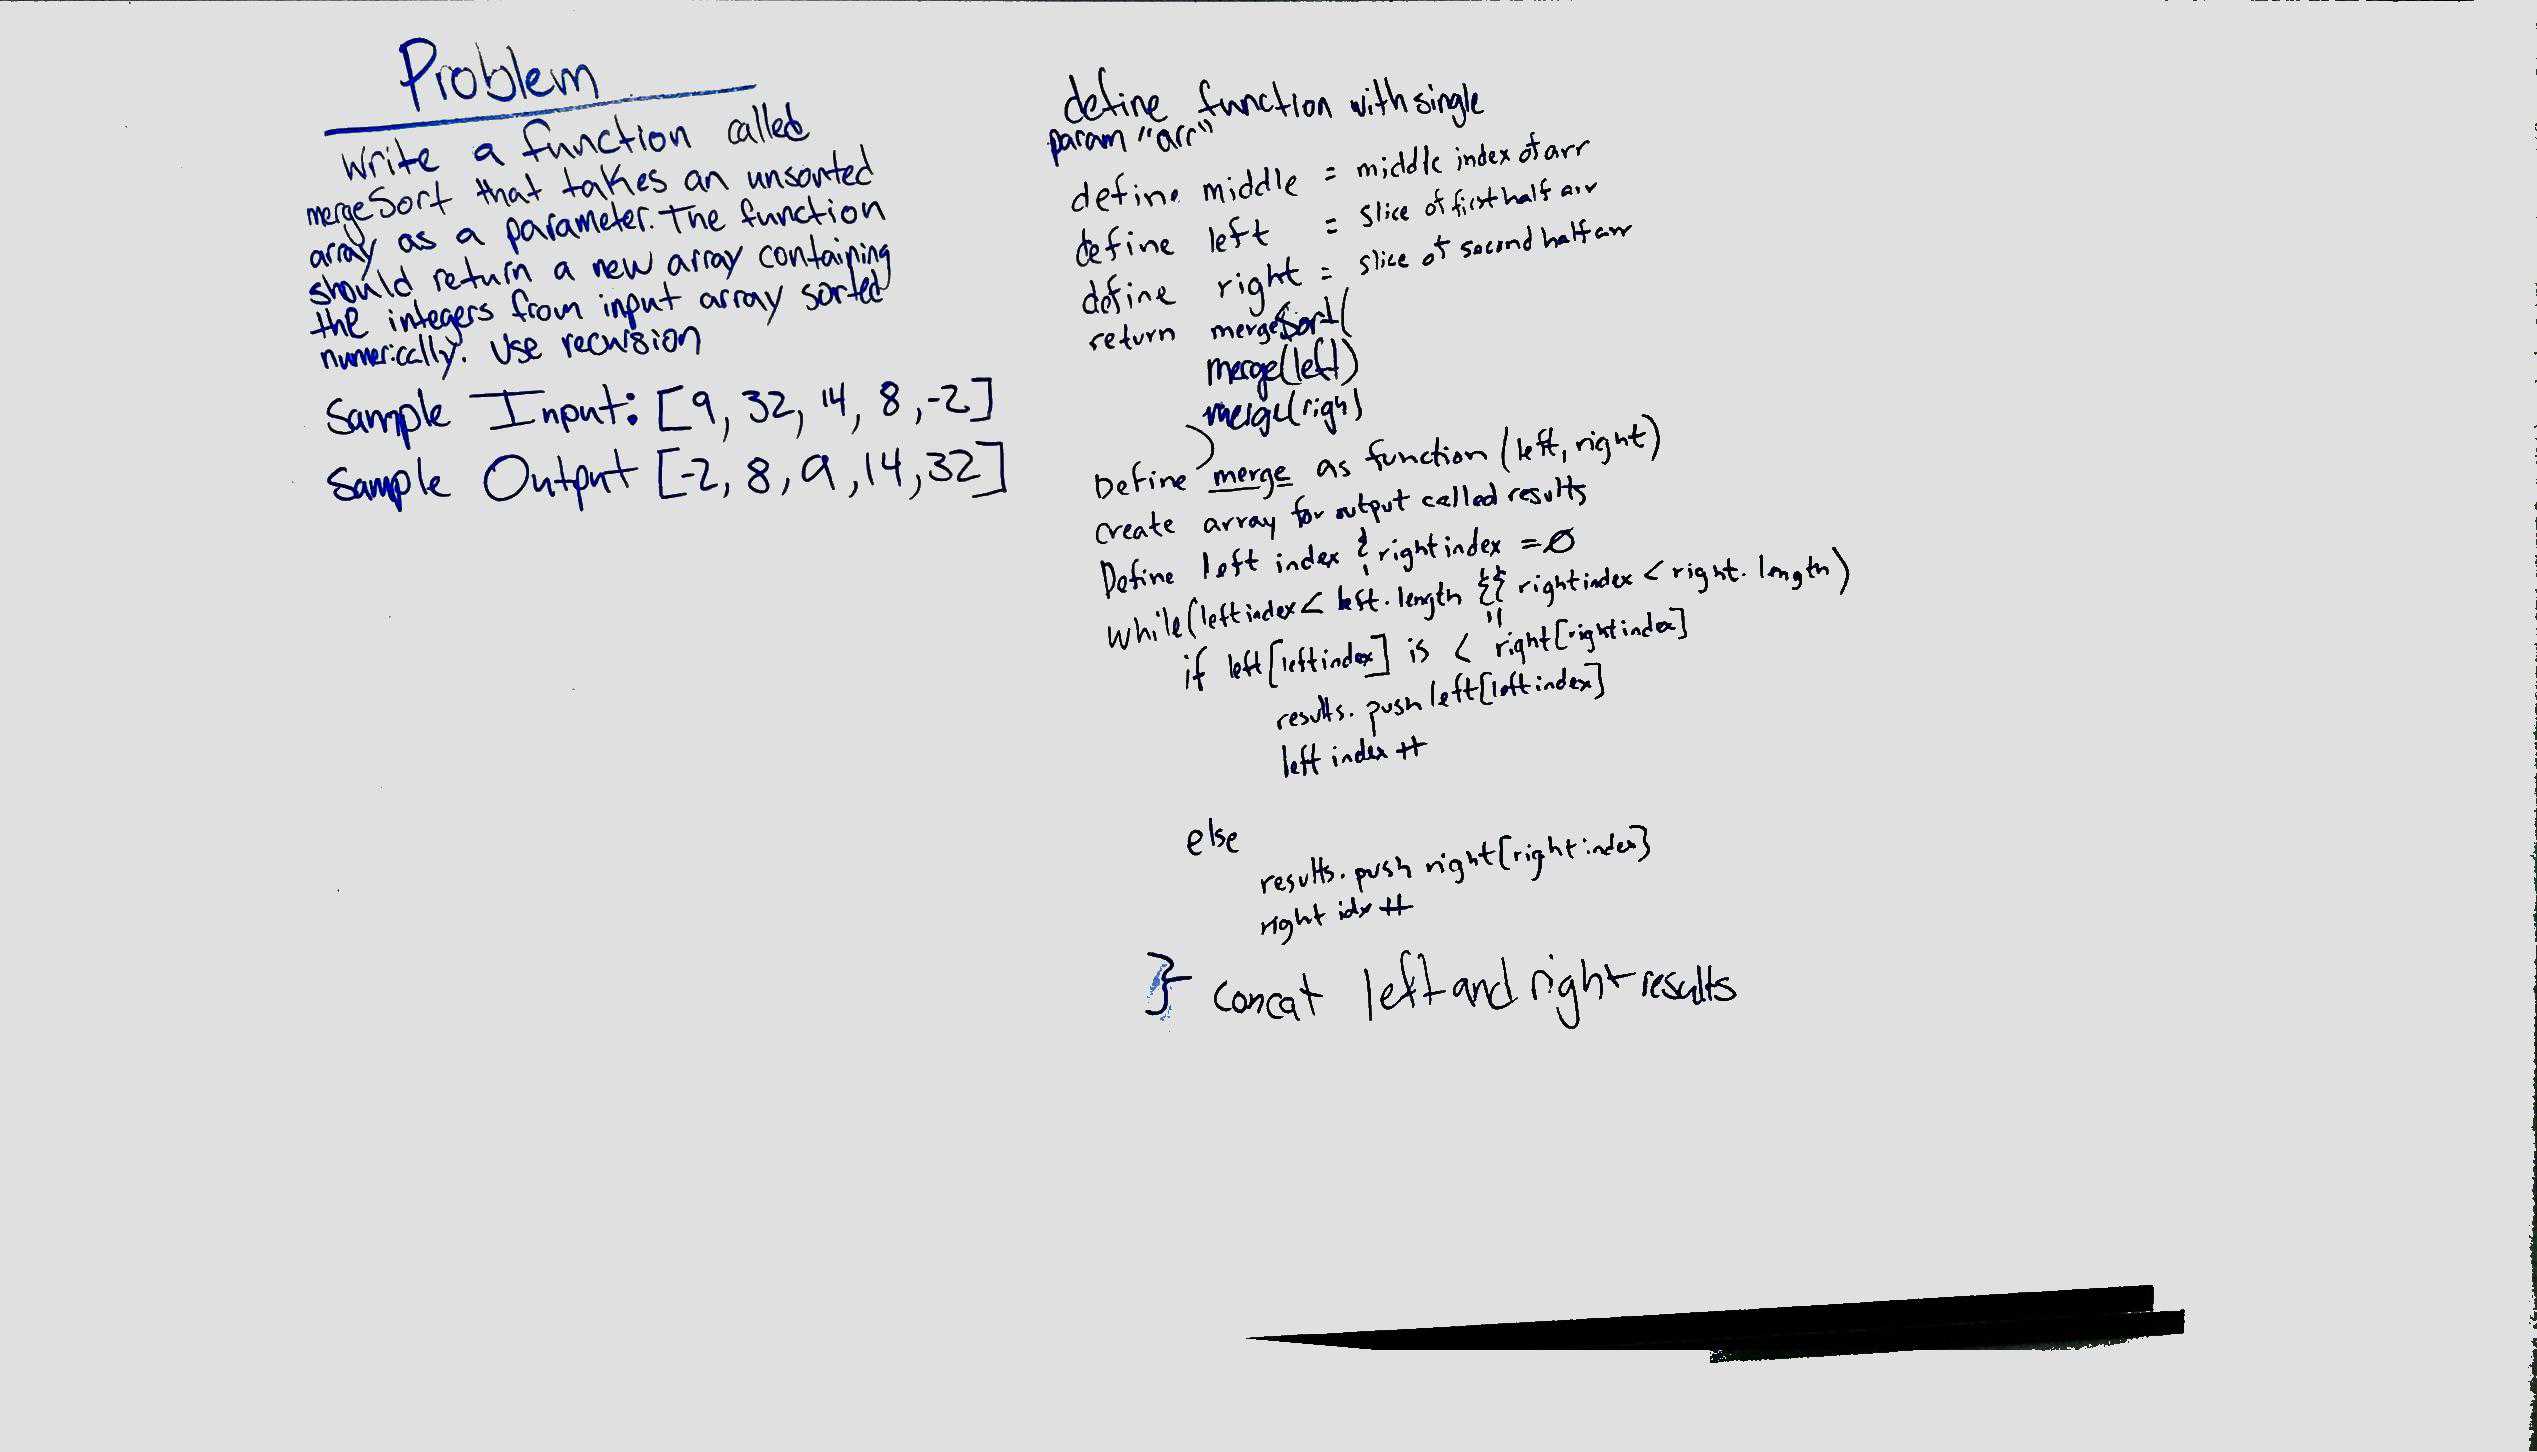 Problem
Write a function called
mergeSort that takes an unsorted
array as a parameter. The function
should return a new array containing
the integers from input array sorted
numerically. Use recursion
Sample Input: [9, 32, 14, 8, -2]
Sample Output [-2, 8, 9, 14, 32]
define function with single
param "arr"
define middle = middle index of arr
define left = slice of first half arr
define right = slice of second half arr
return mergeSort(
merge(left)
merge(righ)
)
Define merge as function (left, right)
create array for output called results
Define left index & right index = Ø
while(left index < left.length && right index < right.length)
if left[left index] is < right[right index]
results.push left[left index]
left index ++
else
results.push right[right index]
right idx ++
} concat left and right results